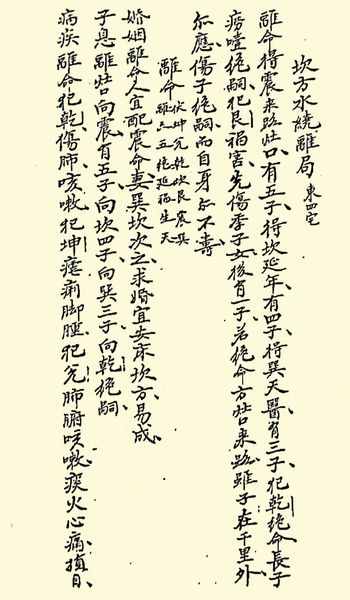 坎方水繞離局 東四宅
離命得震来路灶口、有五子、得坎延年、有四子、得巽天醫有三子、犯乾絶命、長子
癆噎絶嗣、犯艮禍害、先傷季子女、後有一子、若絶命方灶来路、雖子在千里外、
亦應傷子絶嗣、而自身亦不壽、
離命 伏坤兑乾坎艮震巽
離六五絶延禍生天
婚姻離命人宜配震命妻、巽坎次之、求婚宜安床坎方、易成、
子息離灶向震有五子、向坎四子、向巽三子、向乾絶嗣、
病疾離命犯乾、傷肺、咳嗽、犯坤瘧痢脚腫、犯兑肺腑咳嗽、痰火心痛、損目、